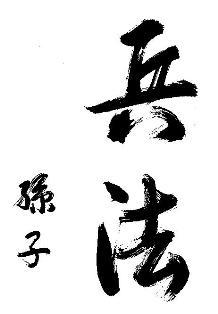 兵法
孫子